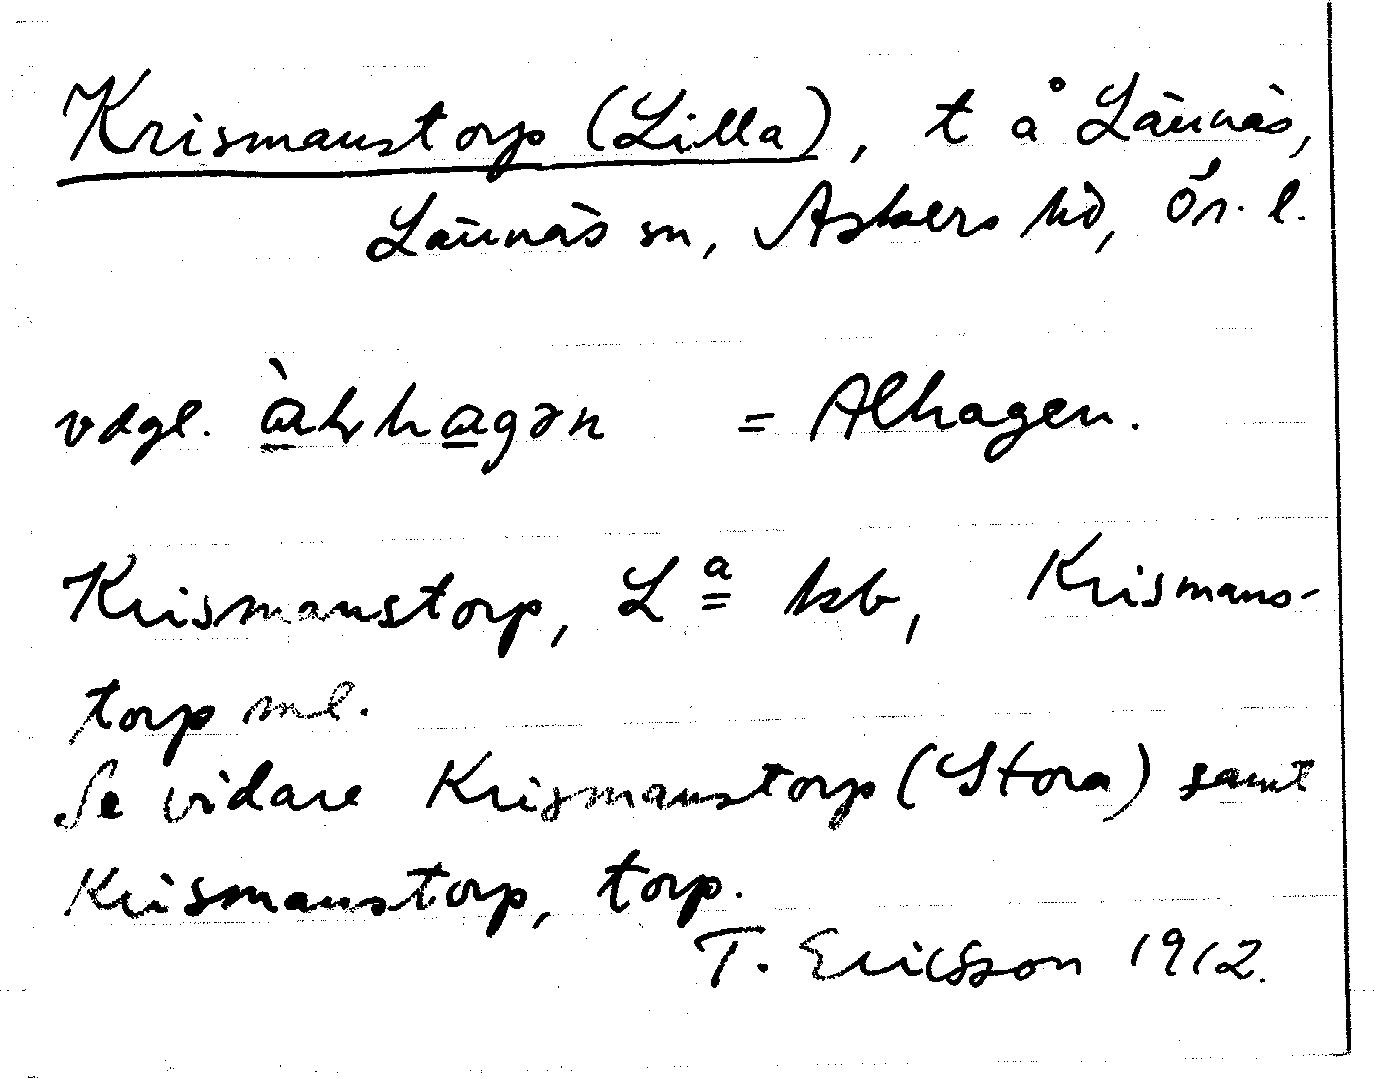 Krismanstorp (Lilla), t å Lännäs,
Lännäs sn, Askers hd, Ör. l.
vdgl. àlrhagən = Alhagen.
Krismanstorp, Lª kb, Krismans-
torp ml.
Se vidare Krismanstorp (Stora) samt
Krismanstorp, torp.
T. Ericsson 1912.